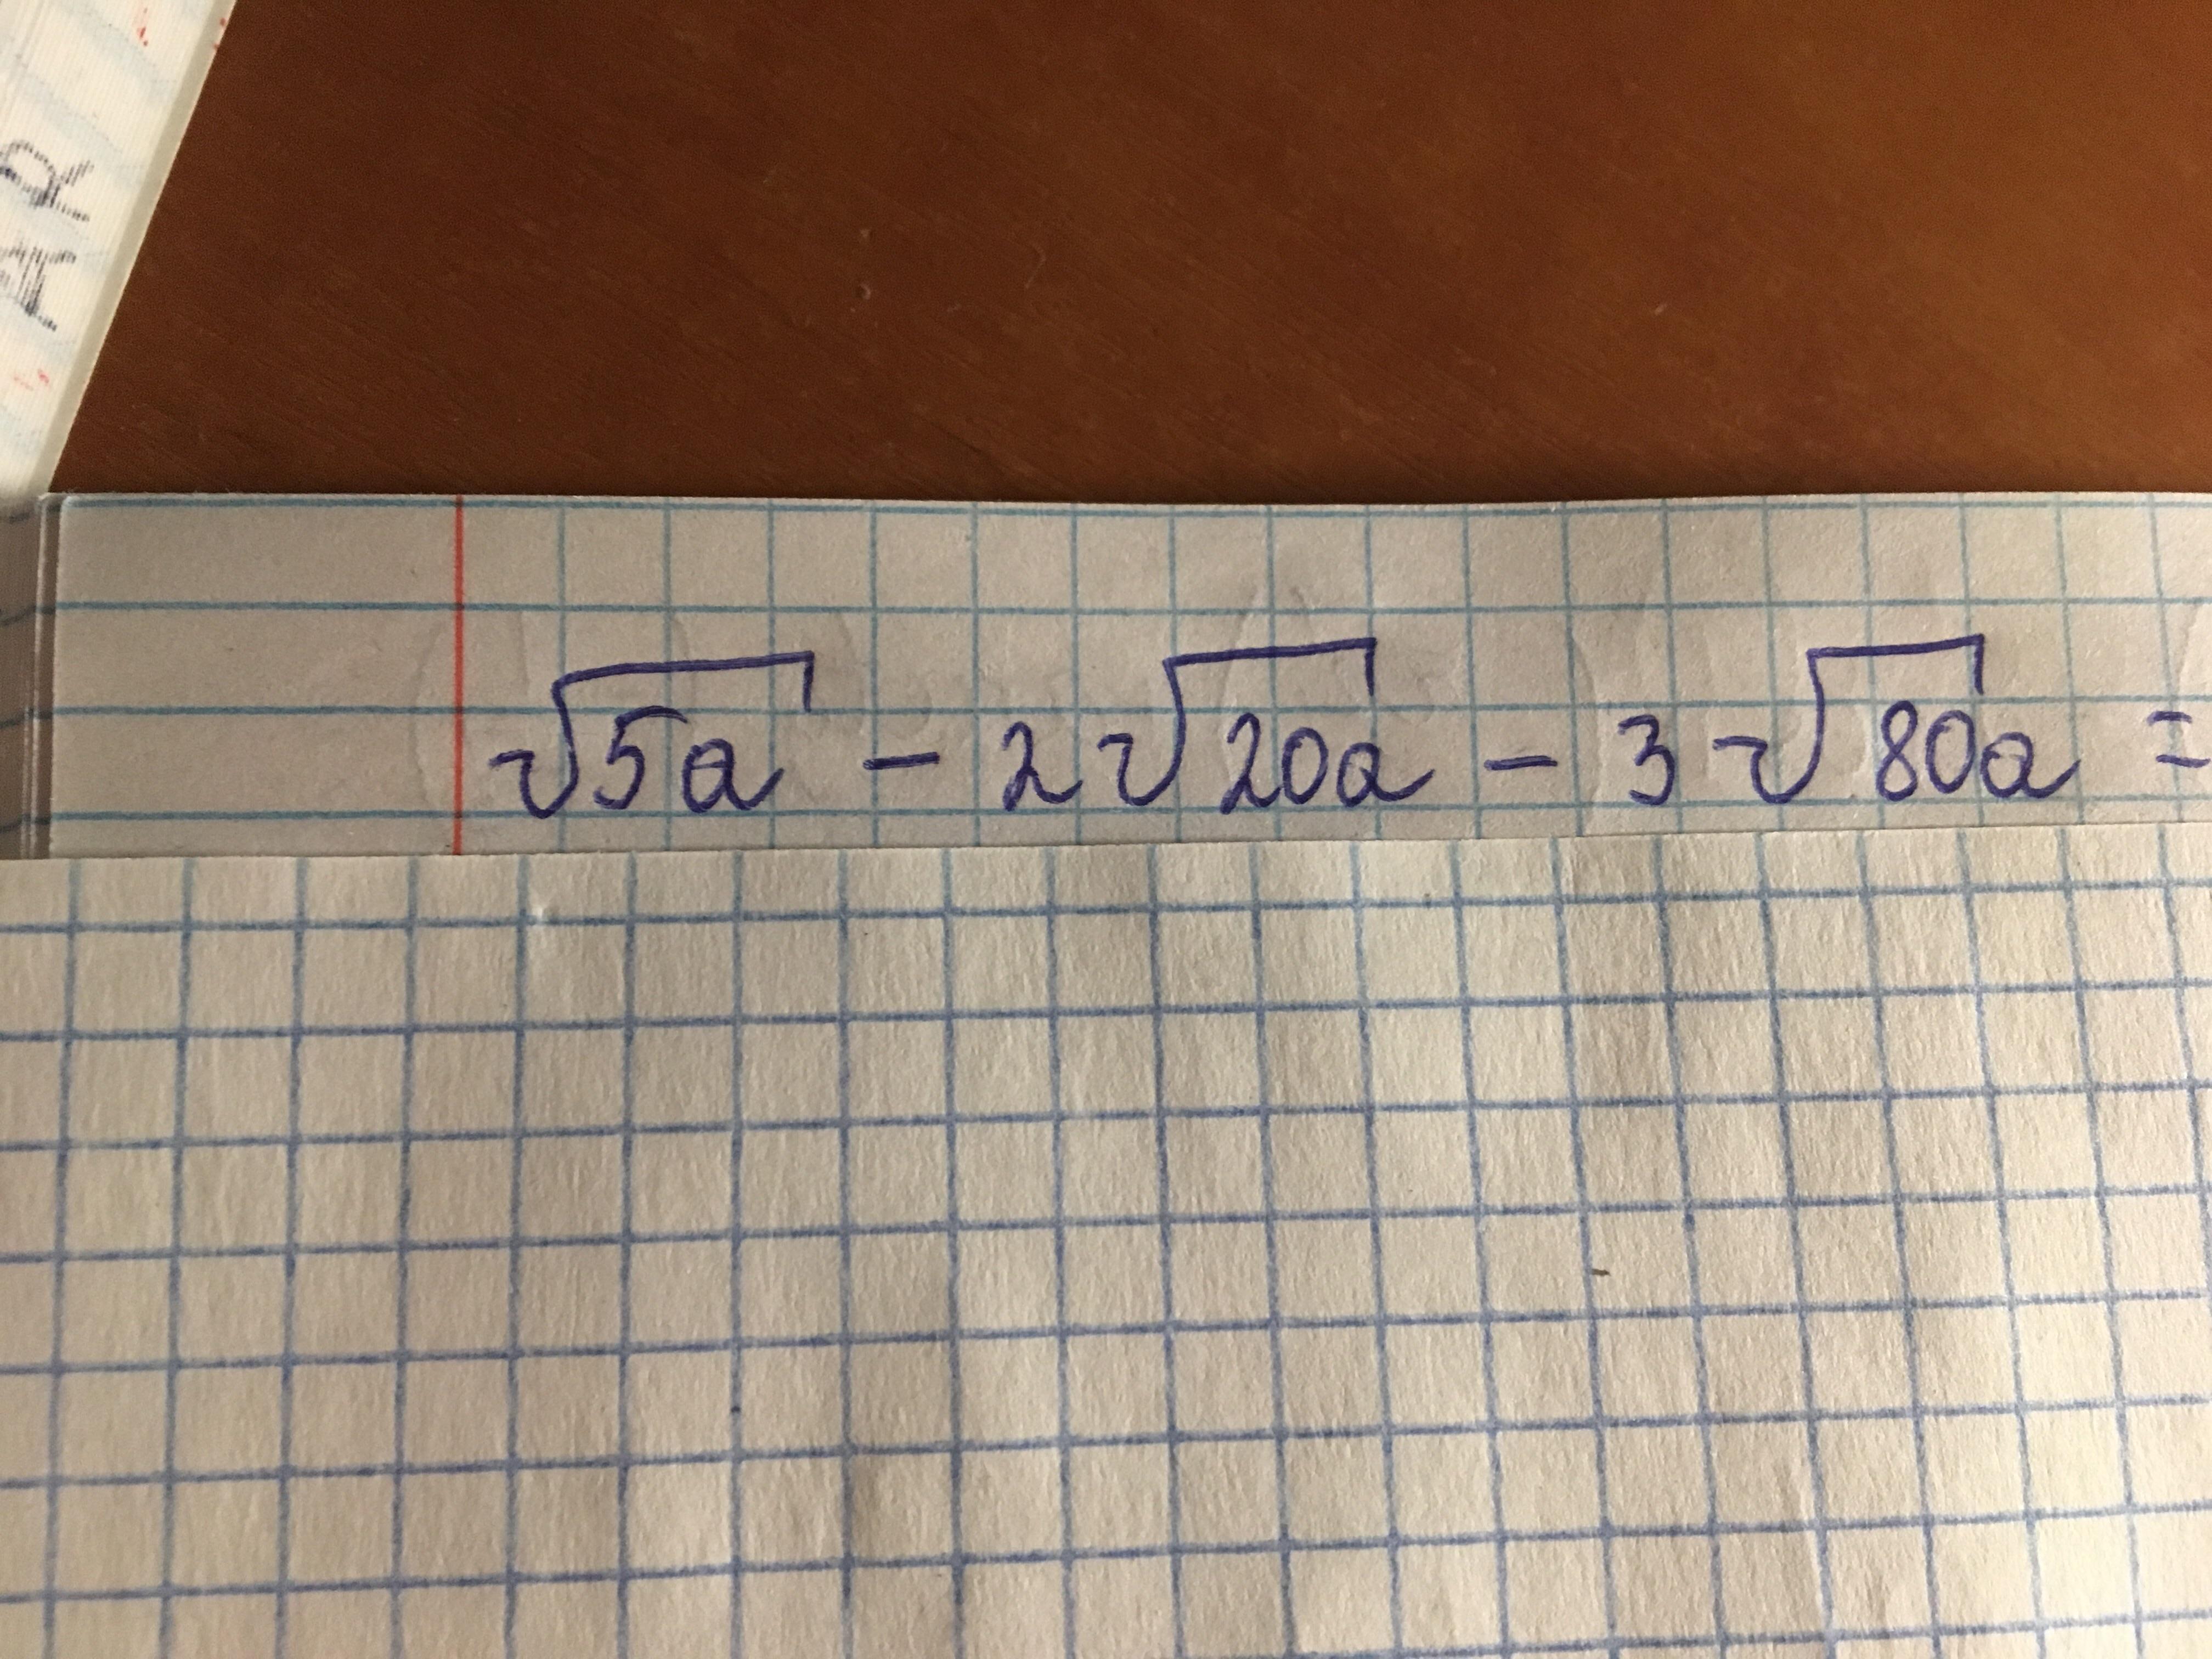 √5a - 2√20a - 3√80a =